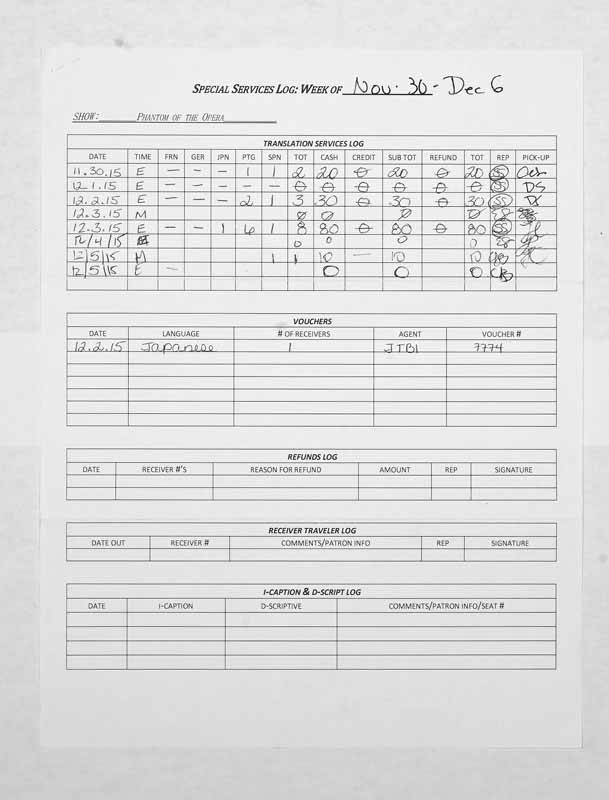 SPECIAL SERVICES LOG: WEEK OF Nov. 30 - Dec 6
SHOW: PHANTOM OF THE OPERA
TRANSLATION SERVICES LOG
DATE TIME FRN GER JPN PTG SPN TOT CASH CREDIT SUB TOT REFUND TOT REP PICK-UP
11.30.15 E — — — 1 1 2 20 0 20 0 20 SS
12.1.15 E — — — 0 0 0 0 0 0 0 0 SS DS
12.2.15 E — — — 2 1 3 30 0 30 0 30 SS
12.3.15 M 0 0 0 0
12.3.15 E — — 1 6 1 8 80 0 80 0 80 SS
12/4/15 0 0 0 0
12/5/15 M 1 1 10 — 10 10
12/5/15 E — 0 0 0
VOUCHERS
DATE LANGUAGE # OF RECEIVERS AGENT VOUCHER #
12.2.15 Japanese 1 JTBI 7774
REFUNDS LOG
DATE RECEIVER #'S REASON FOR REFUND AMOUNT REP SIGNATURE
RECEIVER TRAVELER LOG
DATE OUT RECEIVER # COMMENTS/PATRON INFO REP SIGNATURE
I-CAPTION & D-SCRIPT LOG
DATE I-CAPTION D-SCRIPTIVE COMMENTS/PATRON INFO/SEAT #